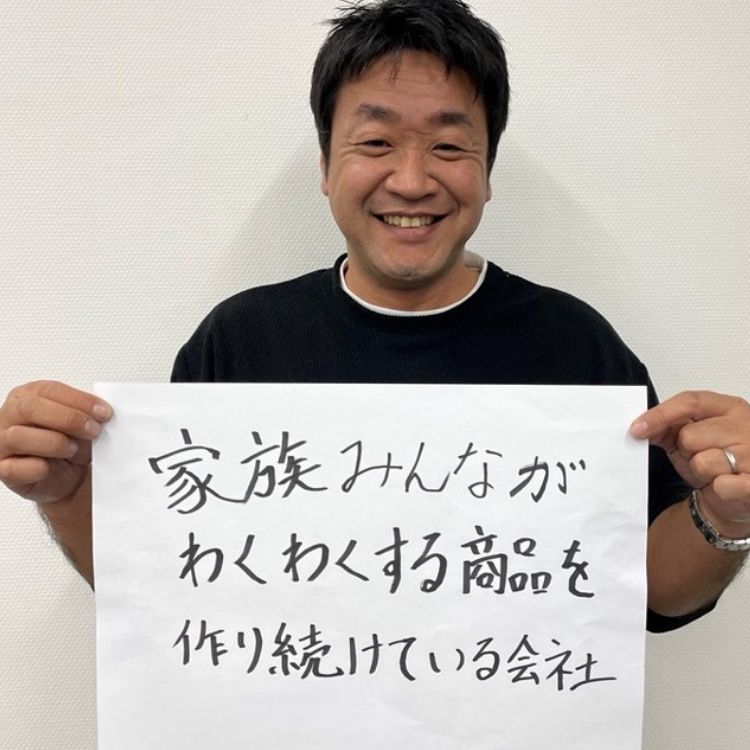 家族みんなが
わくわくする商品を
作り続けている会社